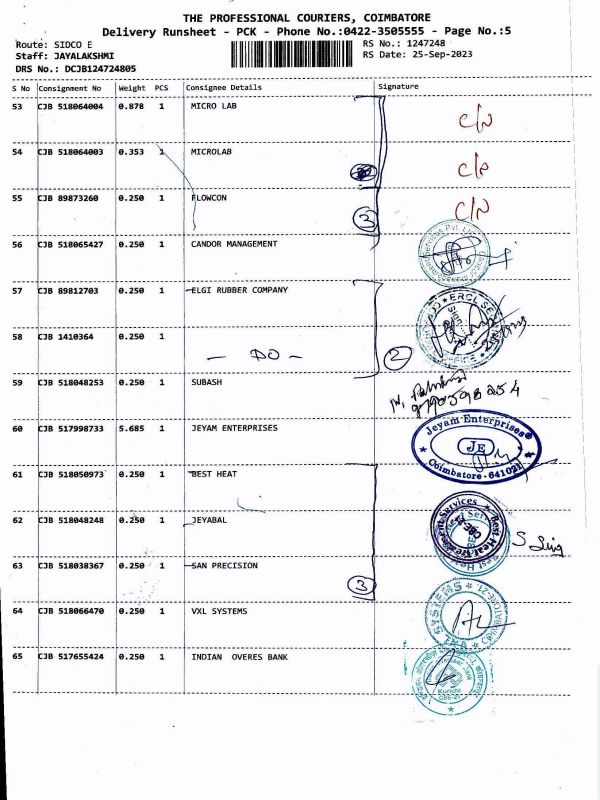 THE PROFESSIONAL COURIERS, COIMBATORE
Delivery Runsheet - PCK - Phone No.:0422-3505555 - Page No.:5
Route: SIDCO E
RS No.: 1247248
Staff: JAYALAKSHMI
RS Date: 25-Sep-2023
DRS No.: DCJB124724805
S No Consignment No Weight PCS Consignee Details Signature
53 CJB 518064004 0.878 1 MICRO LAB C/N
54 CJB 518064003 0.353 1 MICROLAB C/N
55 CJB 89873260 0.250 1 FLOWCON 3 C/N
56 CJB 518065427 0.250 1 CANDOR MANAGEMENT
57 CJB 89812703 0.250 1 ELGI RUBBER COMPANY
58 CJB 1410364 0.250 1
- DO - 2
59 CJB 518048253 0.250 1 SUBASH
60 CJB 517998733 5.685 1 JEYAM ENTERPRISES
Jeyam Enterprises
JE
Coimbatore - 641021
61 CJB 518050973 0.250 1 BEST HEAT
62 CJB 518048248 0.250 1 JEYABAL
63 CJB 518038367 0.250 1 SAN PRECISION
3
64 CJB 518066470 0.250 1 VXL SYSTEMS
65 CJB 517655424 0.250 1 INDIAN OVERES BANK